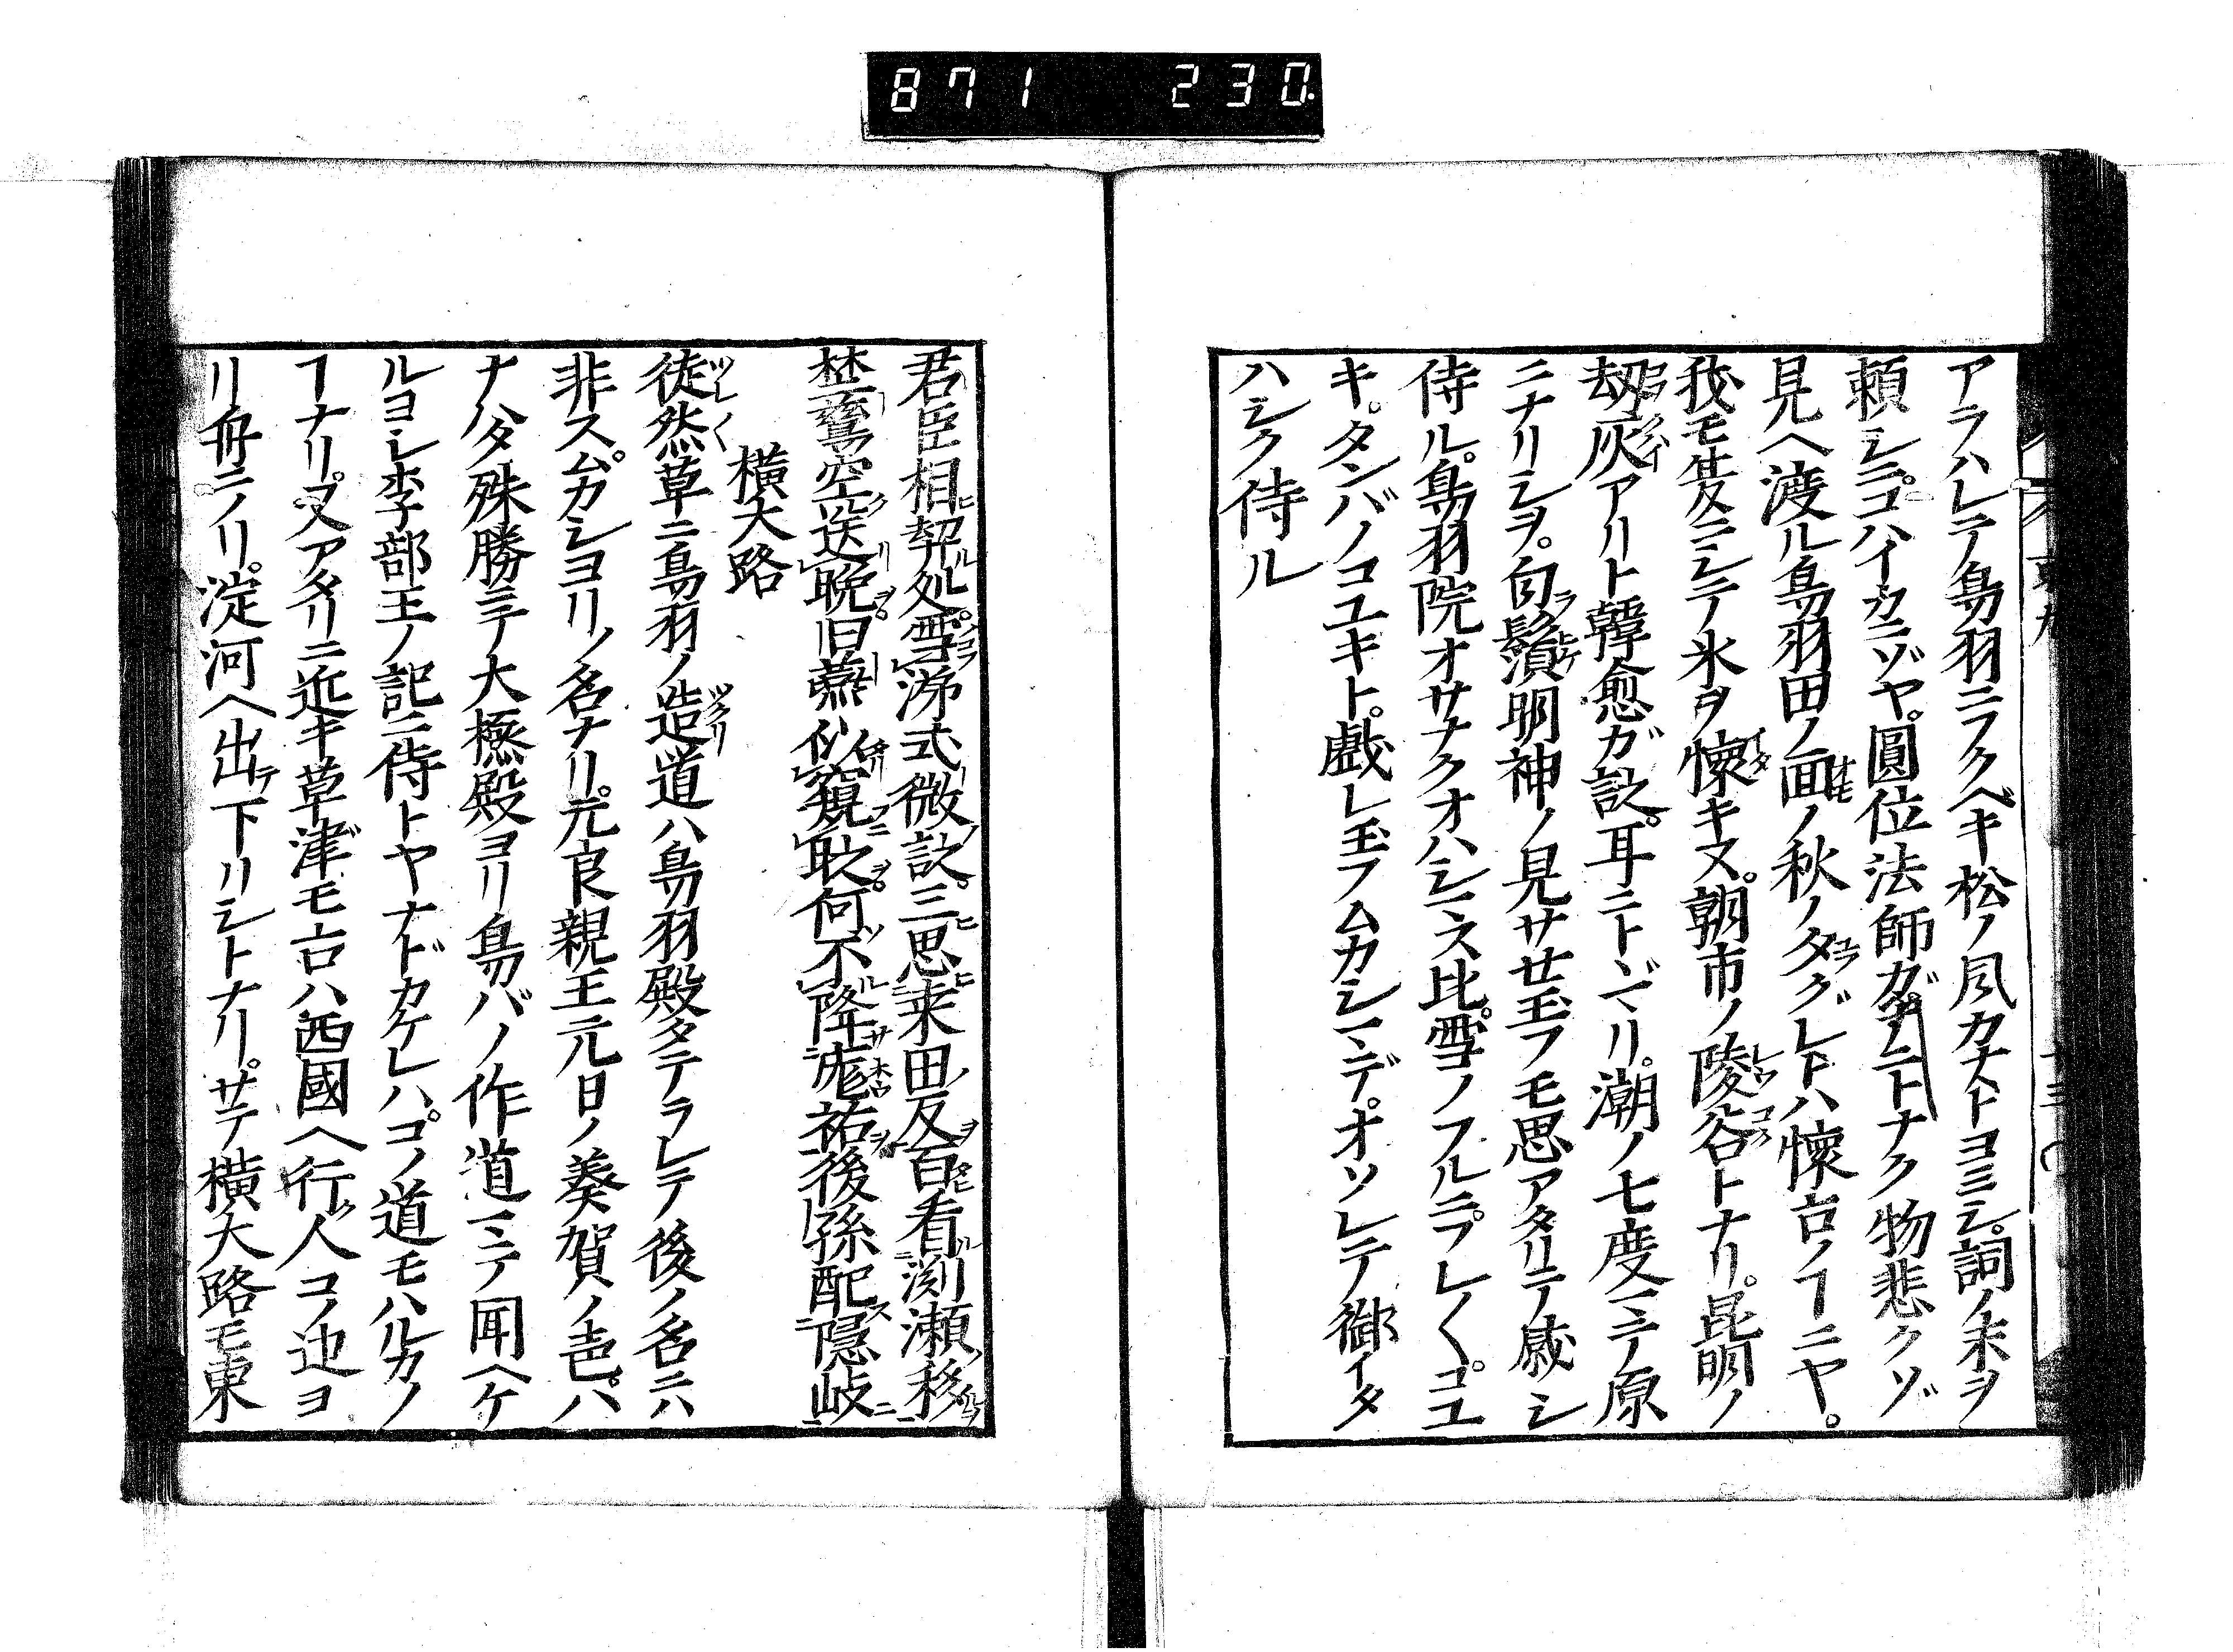 871 230
アラハレテ鳥羽ニフクベキ松ノ风カナトヨミシ。詞ノ末ヲ
頼シニ。コハイカニゾヤ。圓位法師ガナニトナク物悲クゾ
見ヘ渡ル鳥羽田ノ面ノ秋ノタグレトハ懐古ノヿニヤ。
我モ先ニシテ氷ヲ懐キヌ。朝市ノ陵谷トナリ。昆明ノ
劫灰アリト韓愈ガ訟。耳ニトヾマリ。潮ノ七度ミテ原
ニナリシヲ。白鬚明神ノ見サセ玉フモ思アタリテ感シ
侍ル。鳥羽院オサナクオハシマス比。雪ノフルニ。フレ〱。コユ
キ。タンバノコユキト。戯レ玉フムカシマデ。オソレテ御イタ
ハシク侍ル
君臣相契処。雪泝式微訟。三思来田反。百看渕瀬移
埜鶩空送晩。旧燕似窺耿。何不降厖祐。後孫配隠岐
横大路
徒然草ニ鳥羽ノ造道ハ鳥羽殿タテラレテ後ノ名ニハ
非ス。ムカシヨリノ名ナリ。元良親王元日ノ奏賀ノ声。ハ
ナハタ殊勝ニテ大極殿ヨリ鳥バノ作道マテ聞ヘケ
ルヨシ李部王ノ記ニ侍トヤナドカケレハ。コノ道モハルカノ
ヿナリ。又アタリニ近キ草津モ古ハ西國ヘ行人コノ辺ヨ
リ舟ニノリ。淀河ヘ出テ下リシトナリ。サテ横大路モ東